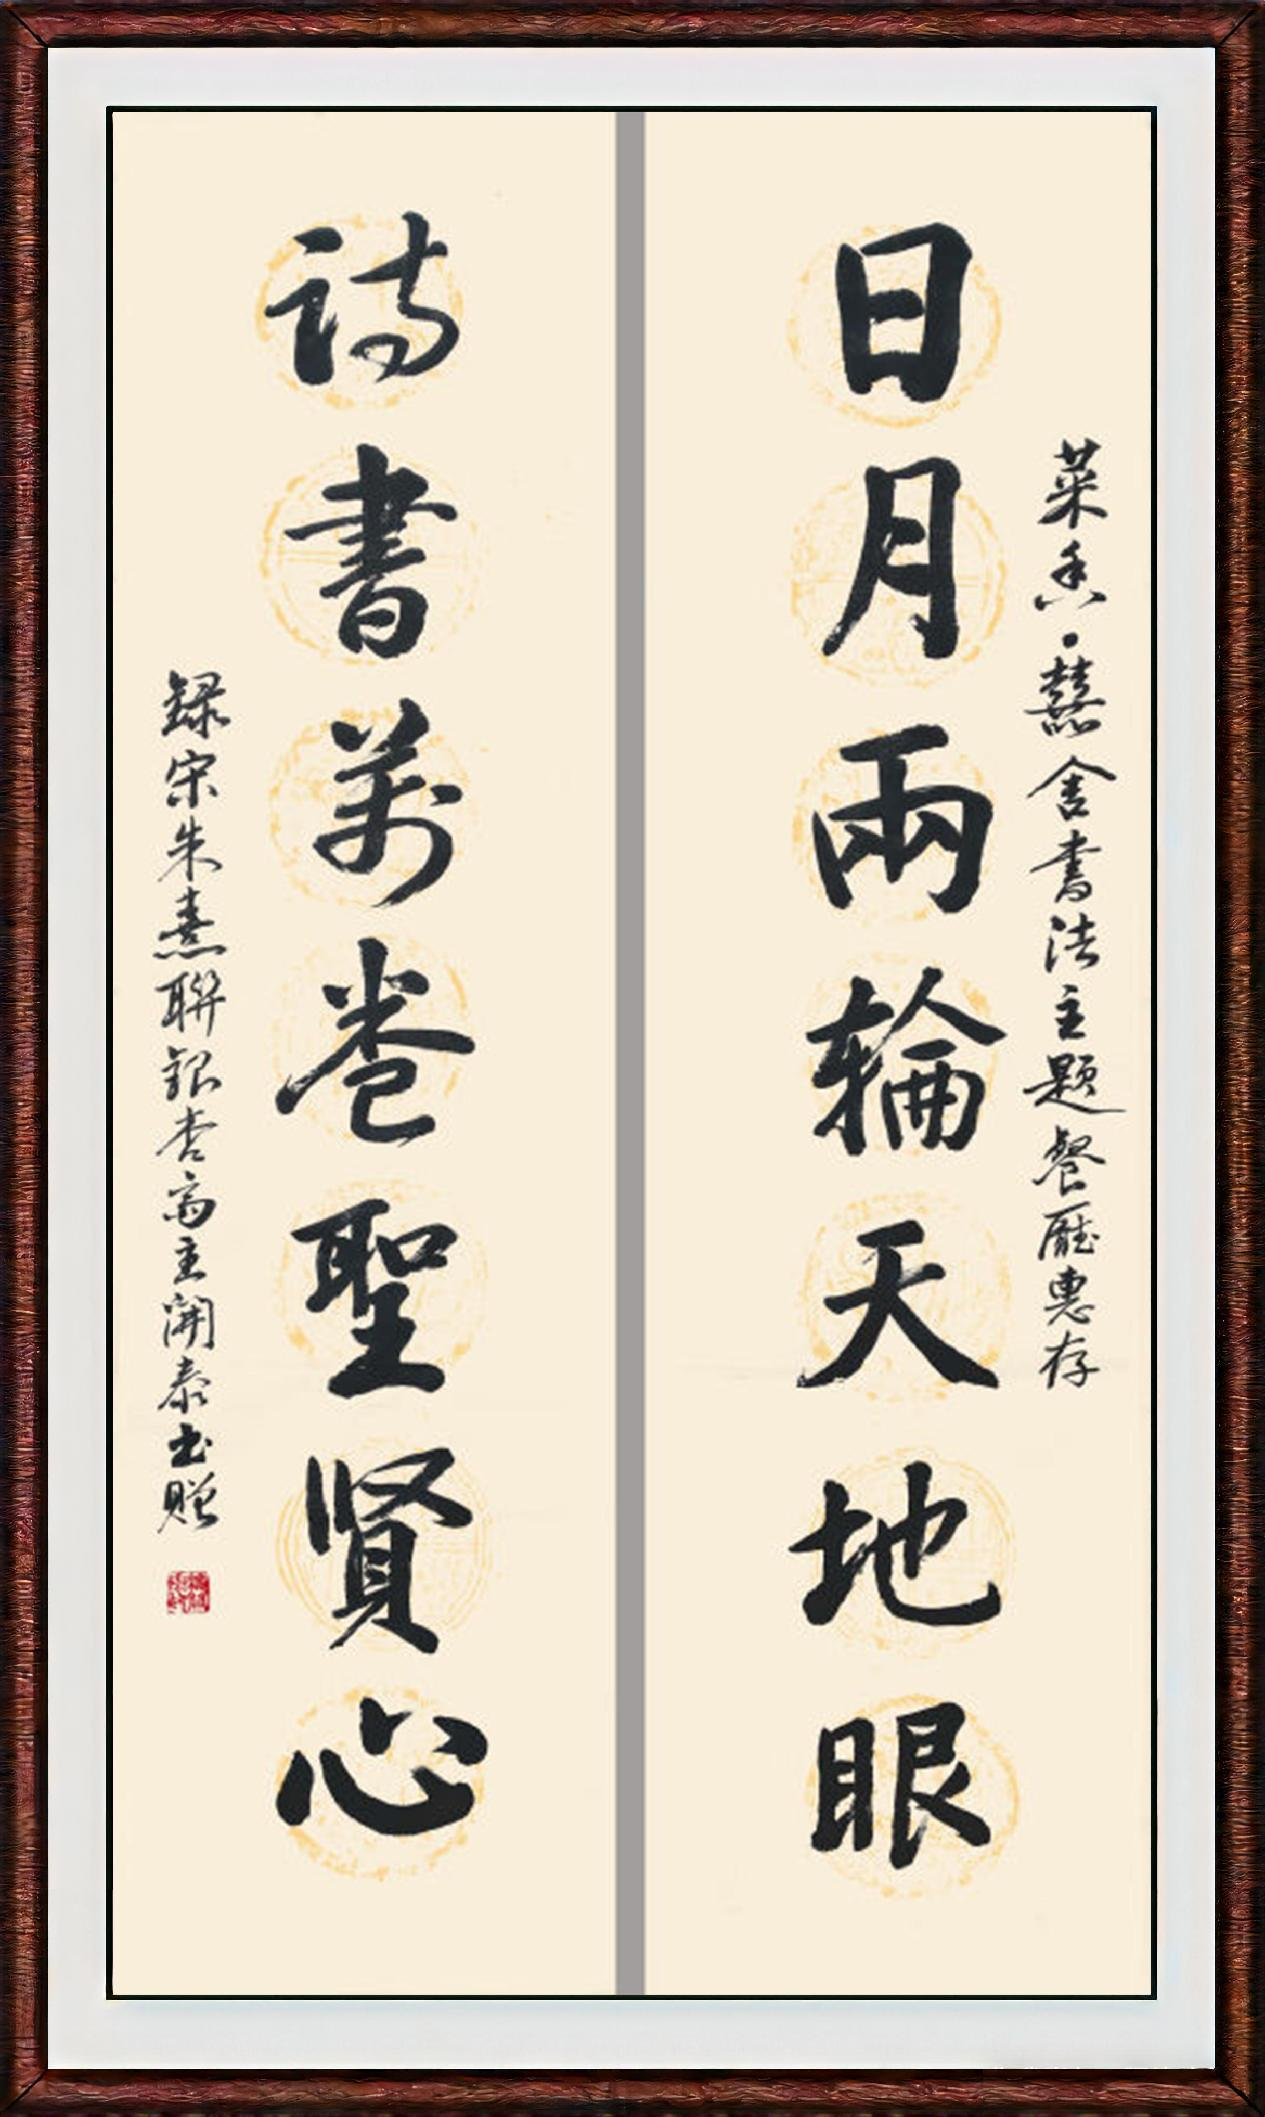 菜香·囍舍書法主題餐廳惠存
日月兩輪天地眼
詩書萬卷聖賢心
録宋朱熹聯銀杏齋主開泰书赠